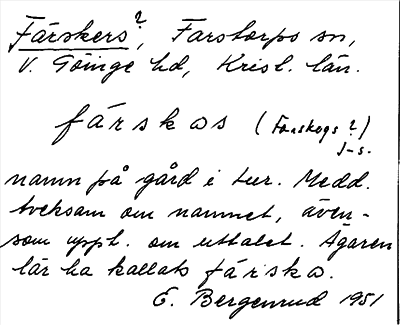 Färskers?, Farstorps sn,
V. Göinge hd, Krisl. län.
färskas (Forskogs?)
J-s.
namn på gård i tur. Medd.
tveksam om namnet, även-
som uppt. om uttalet. Ägaren
lär ha kallats färska.
E. Bergenrud 1951